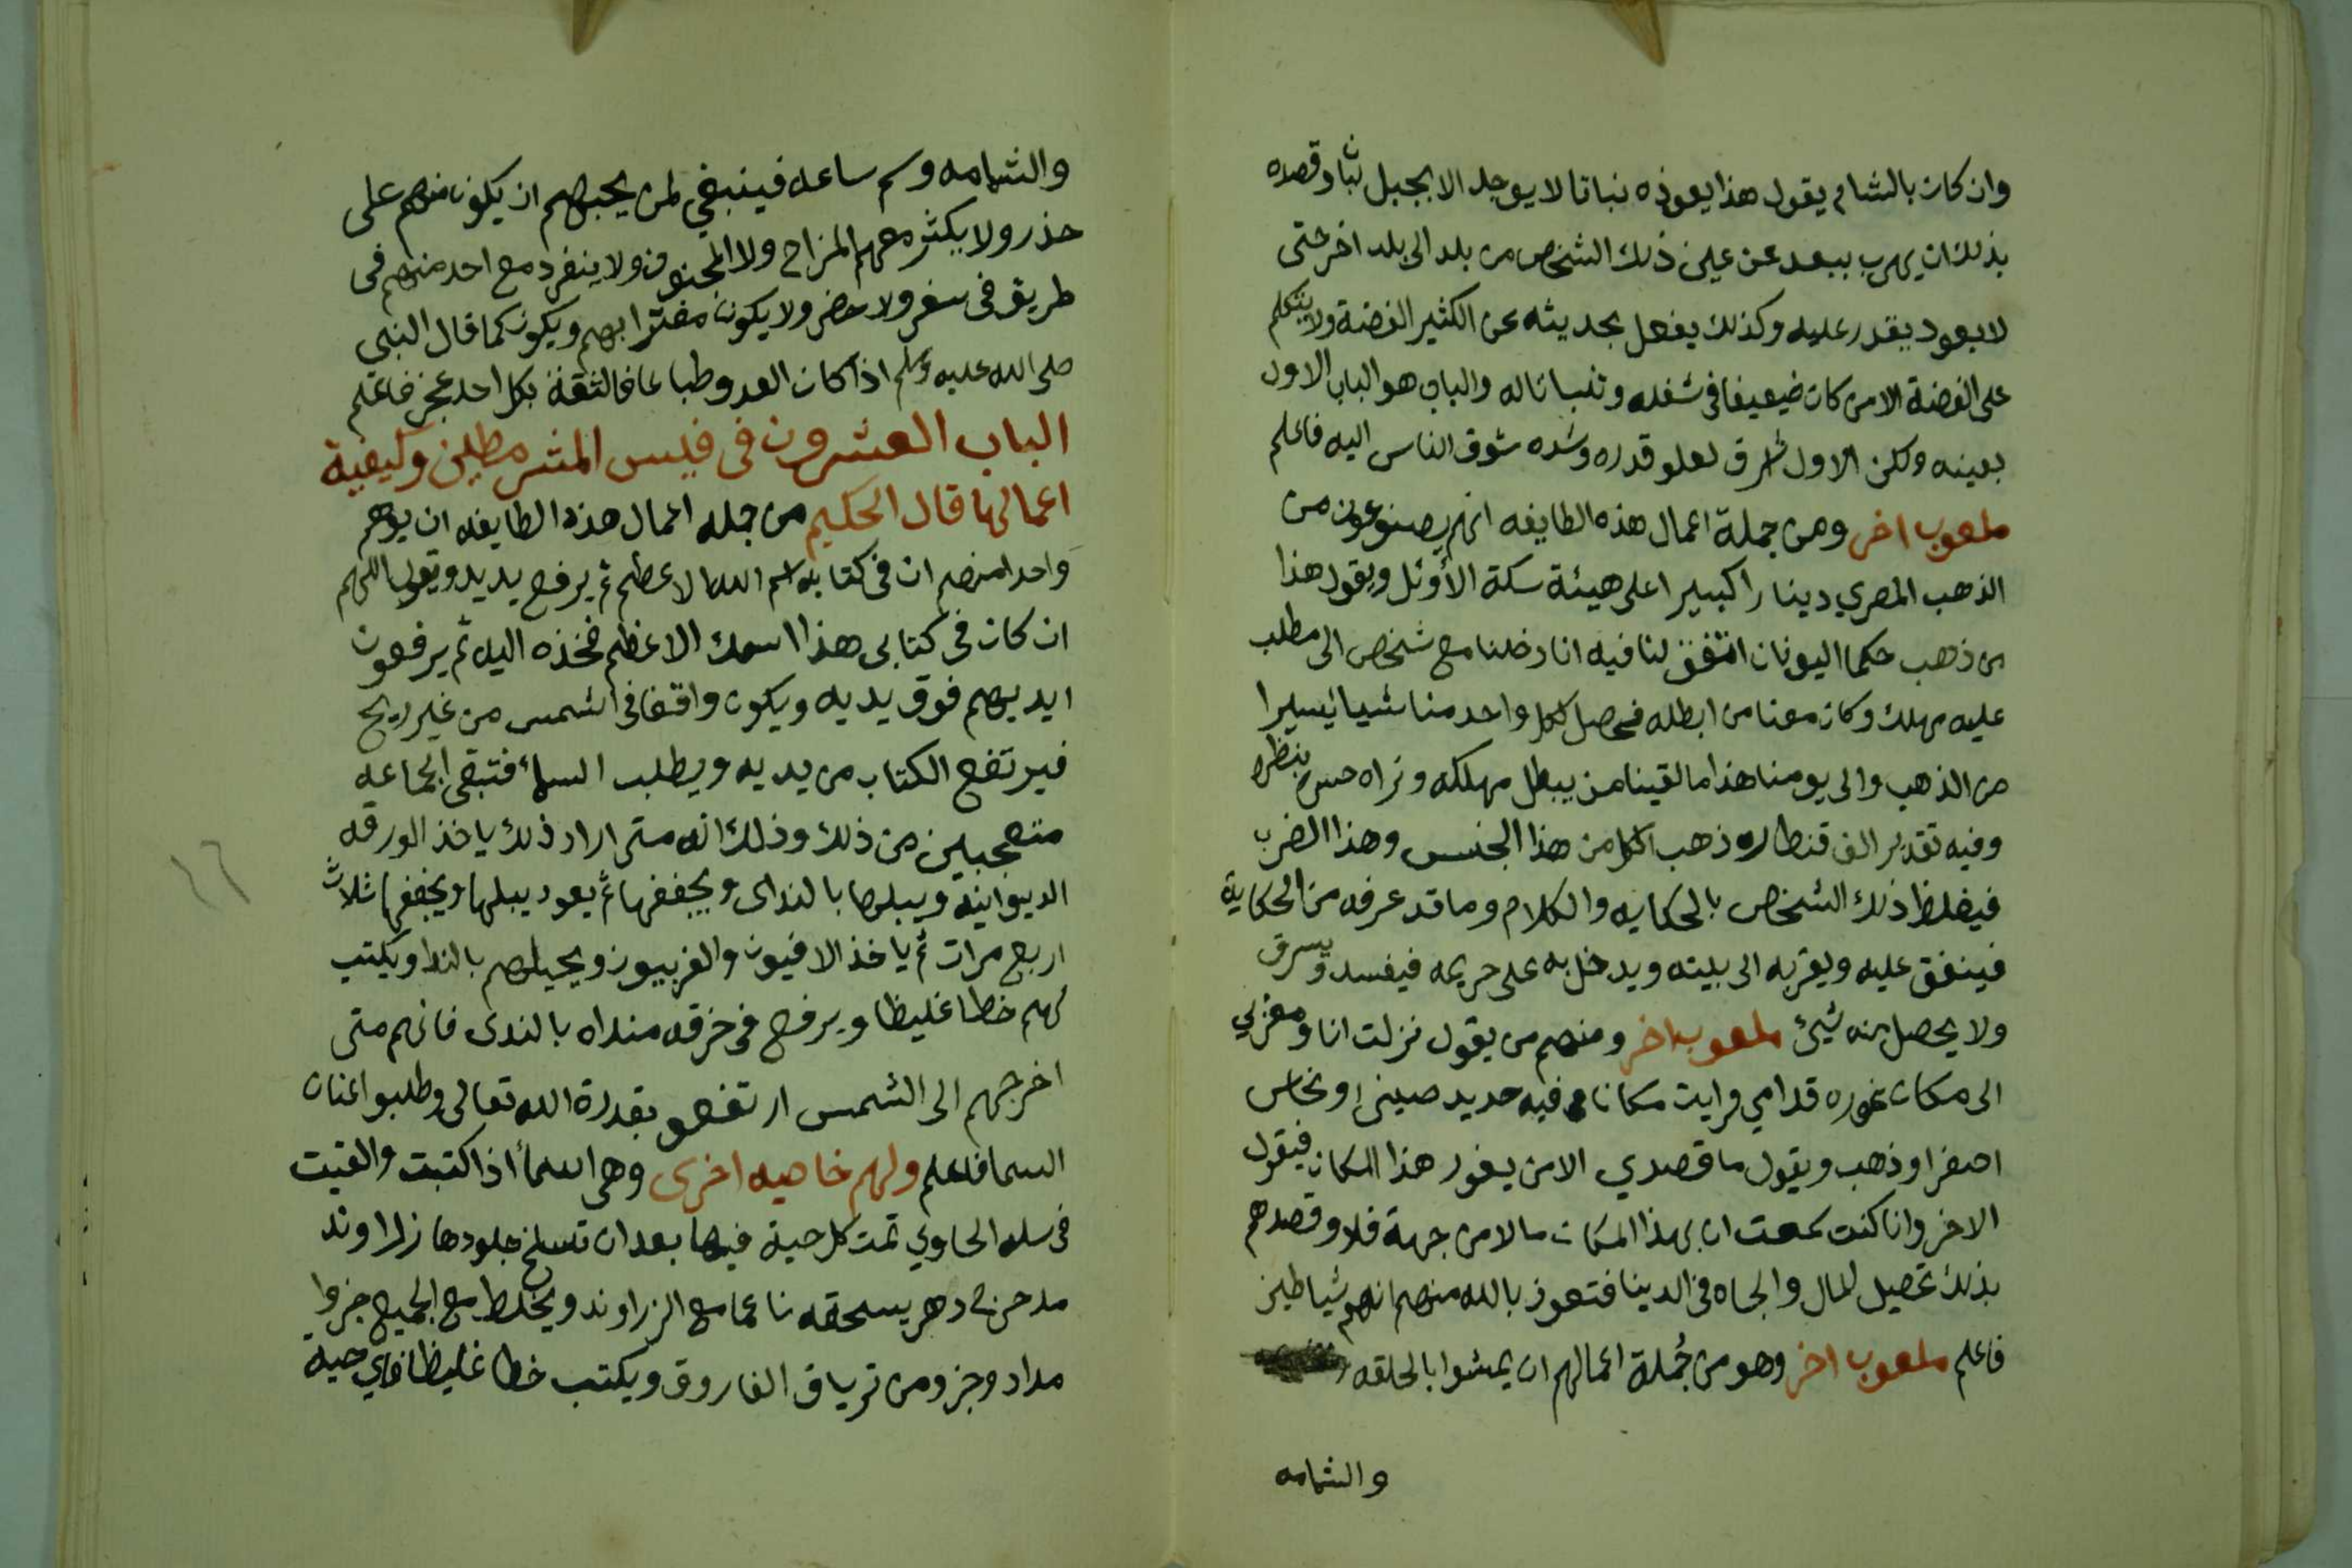 وان كان بالشام يقول هذا يعوذه نباتا لا يوجد الا بجبل لبنان وقصده
بذلك ان يهرب يبعد عن عين ذلك الشخص من بلد الى بلد اخر حتى
لا يعود يقدر عليه وكذلك يفعل بحديثه عن الكثير الفضة ولا يتكلم
على الفضة الا من كان ضعيفا في شغله والباب هو الباب الاول
بعينه ولكن الاول شرق لعلو قدره وشده شوق الناس اليه فاعلم
ملعوب اخر ومن جملة اعمال هذه الطايفه انهم يصنوعون من
الذهب المصري دينارا كبيرا على هيئة سكة الأوئل ويقول هذا
من ذهب حكما اليونان اتفق لنا فيه انا دخلنا مع شخص الى مطلب
عليه مهلك وكان معنا من ابطله فحصل لكل واحد منا شيا يسيرا
من الذهب والى يومنا هذا ما لقينا من يبطل مهلكه ونراه حسن بنظره
وفيه تقدير الف قنطاره ذهب اكل من هذا الجنس وهذا الضرب
فيغلظ ذلك الشخص بالحكايه والكلام وما قد عرفه من الحكاية
فينفق عليه ويقربه الى بيته ويدخل به على حريمه فيفسد ويسرق
ولا يحصل منه شيئ ملعوب اخر ومنهم من يقول نزلت انا ومغربي
الى مكان غوره قدامي ورايت مكانا فيه حديد صيني او نحاس
اصفر او ذهب ويقول ما قصدي الا من يغور هذا المكان فيقول
الاخر وانا كنت سمعت ان بهذا المكان مالا من جهة فلا وقصدهم
بذلك تحصيل المال والجاه في الدينا فتعوذ بالله منهم انهم شياطين
فاعلم ملعوب اخر وهو من جُملة اعمالهم ان يمشوا بالحلقه
والشمامه
والشمامه وسم ساعه فينبغي لمن يحبهم ان يكون منهم على
حذر ولا يكثر معهم المزاح ولا المجنون ولا ينفرد مع احد منهم في
طريق في سفر ولا حضر ولا يكون مغترا بهم ويكون كما قال النبي
صلى الله عليه وسلم اذا كان الغدر طباعا فالثقة بكل احد عجز فاعلم
الباب العشرون في فليس المشرمطين وكيفية
اعمالها قال الحكيم من جمله اعمال هذه الطايفه ان يوهم
واحدا منهم ان في كتابه اسم الله الاعظم ثم يرفع يديه ويقول اللهم
ان كان في كتابى هذا اسمك الاعظم فخذه اليك ثم يرفعون
ايديهم فوق يديه ويكون واقفا في الشمس من غير ريح
فيرتفع الكتاب من يديه ويطلب السماء فتبقى الجماعه
متعجبين من ذلك وذلك انه متى اراد ذلك ياخذ الورقه
الديوانيه ويبلها بالنداى ويجففها ثم يعود يبلها ويجففها ثلاث
اربع مرات ثم ياخذ الافيون والفربيون ويحيلهم بالندا ويكتب
بهم خطا غليظا ويرفع في خرقه منداه بالندى فانهم متى
اخرجهم الى الشمس ارتفعو بقدرة الله تعالى وطلبو اعنان
السما فاعلم ولهم خاصيه اخرى وهى اسمأ اذا كتبت والقيت
في سله الحاوي تمت كل حية فيها بعد ان تسلخ جلودها زراوند
مدحرج دهر يسحقه ناعما مع الزراوند ويخلط مع الجميع جزوا
مداد وجزو من ترياق الفاروق ويكتب خطا غليظا فاي حية